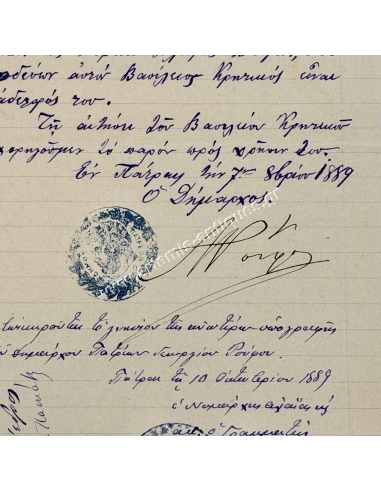 οδεύων αὐτὸν Βασίλειος Κρητικὸς εἶναι
ἀδελφός του.
Τῇ αἰτήσει τοῦ Βασιλείου Κρητικοῦ
χορηγοῦμεν τὸ παρὸν πρὸς χρῆσίν του.
Ἐν Πάτραις τὴν 7ην 8βρίου 1889
Ὁ Δήμαρχος
Ἐπικυροῦται τὸ γνήσιον τῆς ἀνωτέρω ὑπογραφῆς
Δημάρχου Πατρέων Γεωργίου Ρούφου.
Πάτραι τῇ 10 Ὀκτωβρίου 1889
ὁ Νομάρχης
ὁ Γραμματεὺς